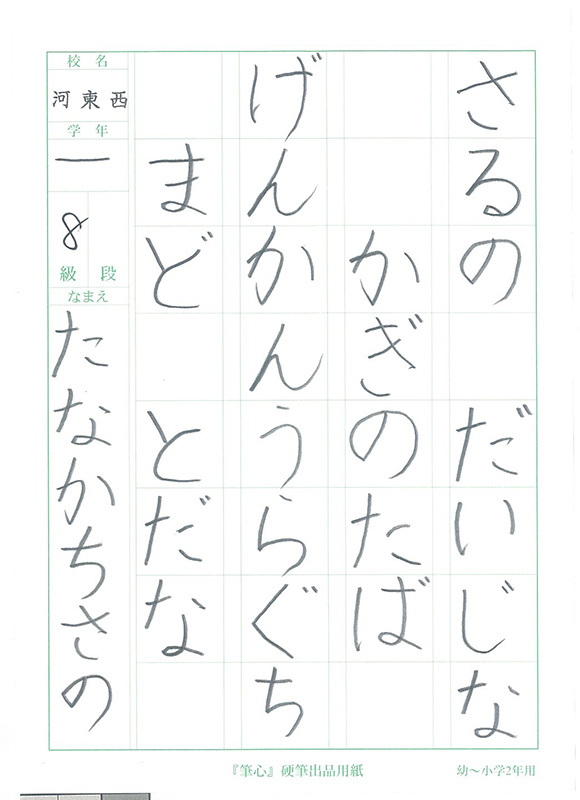 さるの だいじな
かぎのたば
げんかんうらぐち
まど とだな
校名
河東西
学年
一
8
級 段
なまえ
たなかちさの
『筆心』硬筆出品用紙
幼〜小学2年用